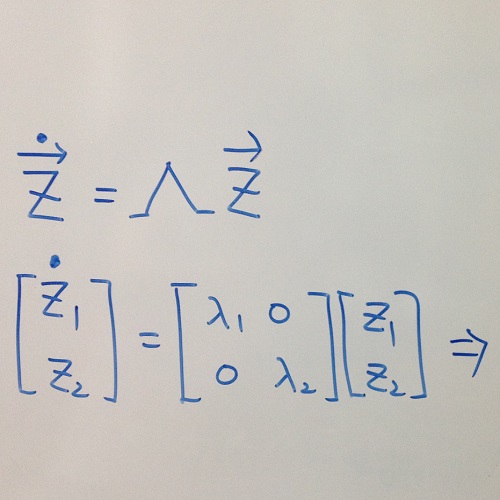 \dot{\vec{z}} = Λ \vec{z}
\dot{\begin{bmatrix} z_1 \\ z_2 \end{bmatrix}} = \begin{bmatrix} λ_1 & 0 \\ 0 & λ_2 \end{bmatrix} \begin{bmatrix} z_1 \\ z_2 \end{bmatrix} ⇒